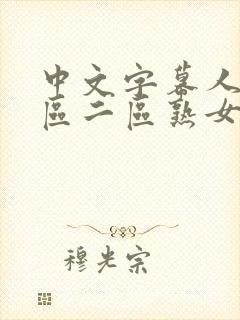 中文字幕人
區二區熟女
穆光宗